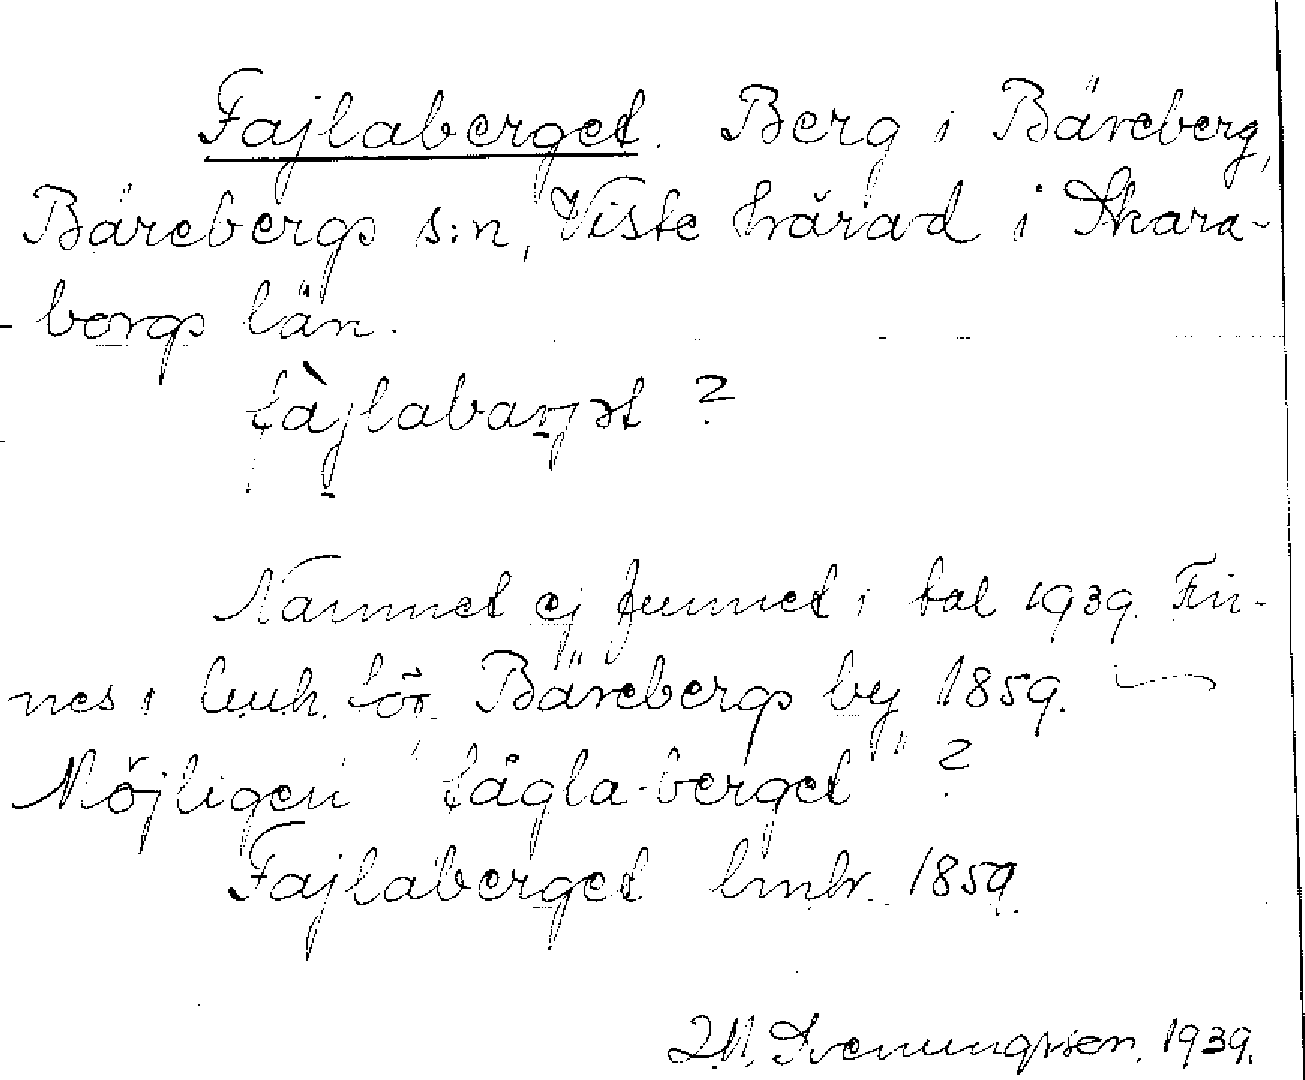 Fajlaberget. Berg i Bäreberg,
Bärebergs s:n, Viste härad i Skara-
borgs län.
fàjlabarjət ?
Namnet ej funnet i tal 1939. Fin-
nes i lmh. för Bärebergs by 1859.
Möjligen "fågla-berget" ?
Fajlaberget lmhr. 1859.
Svenungsson. 1939.